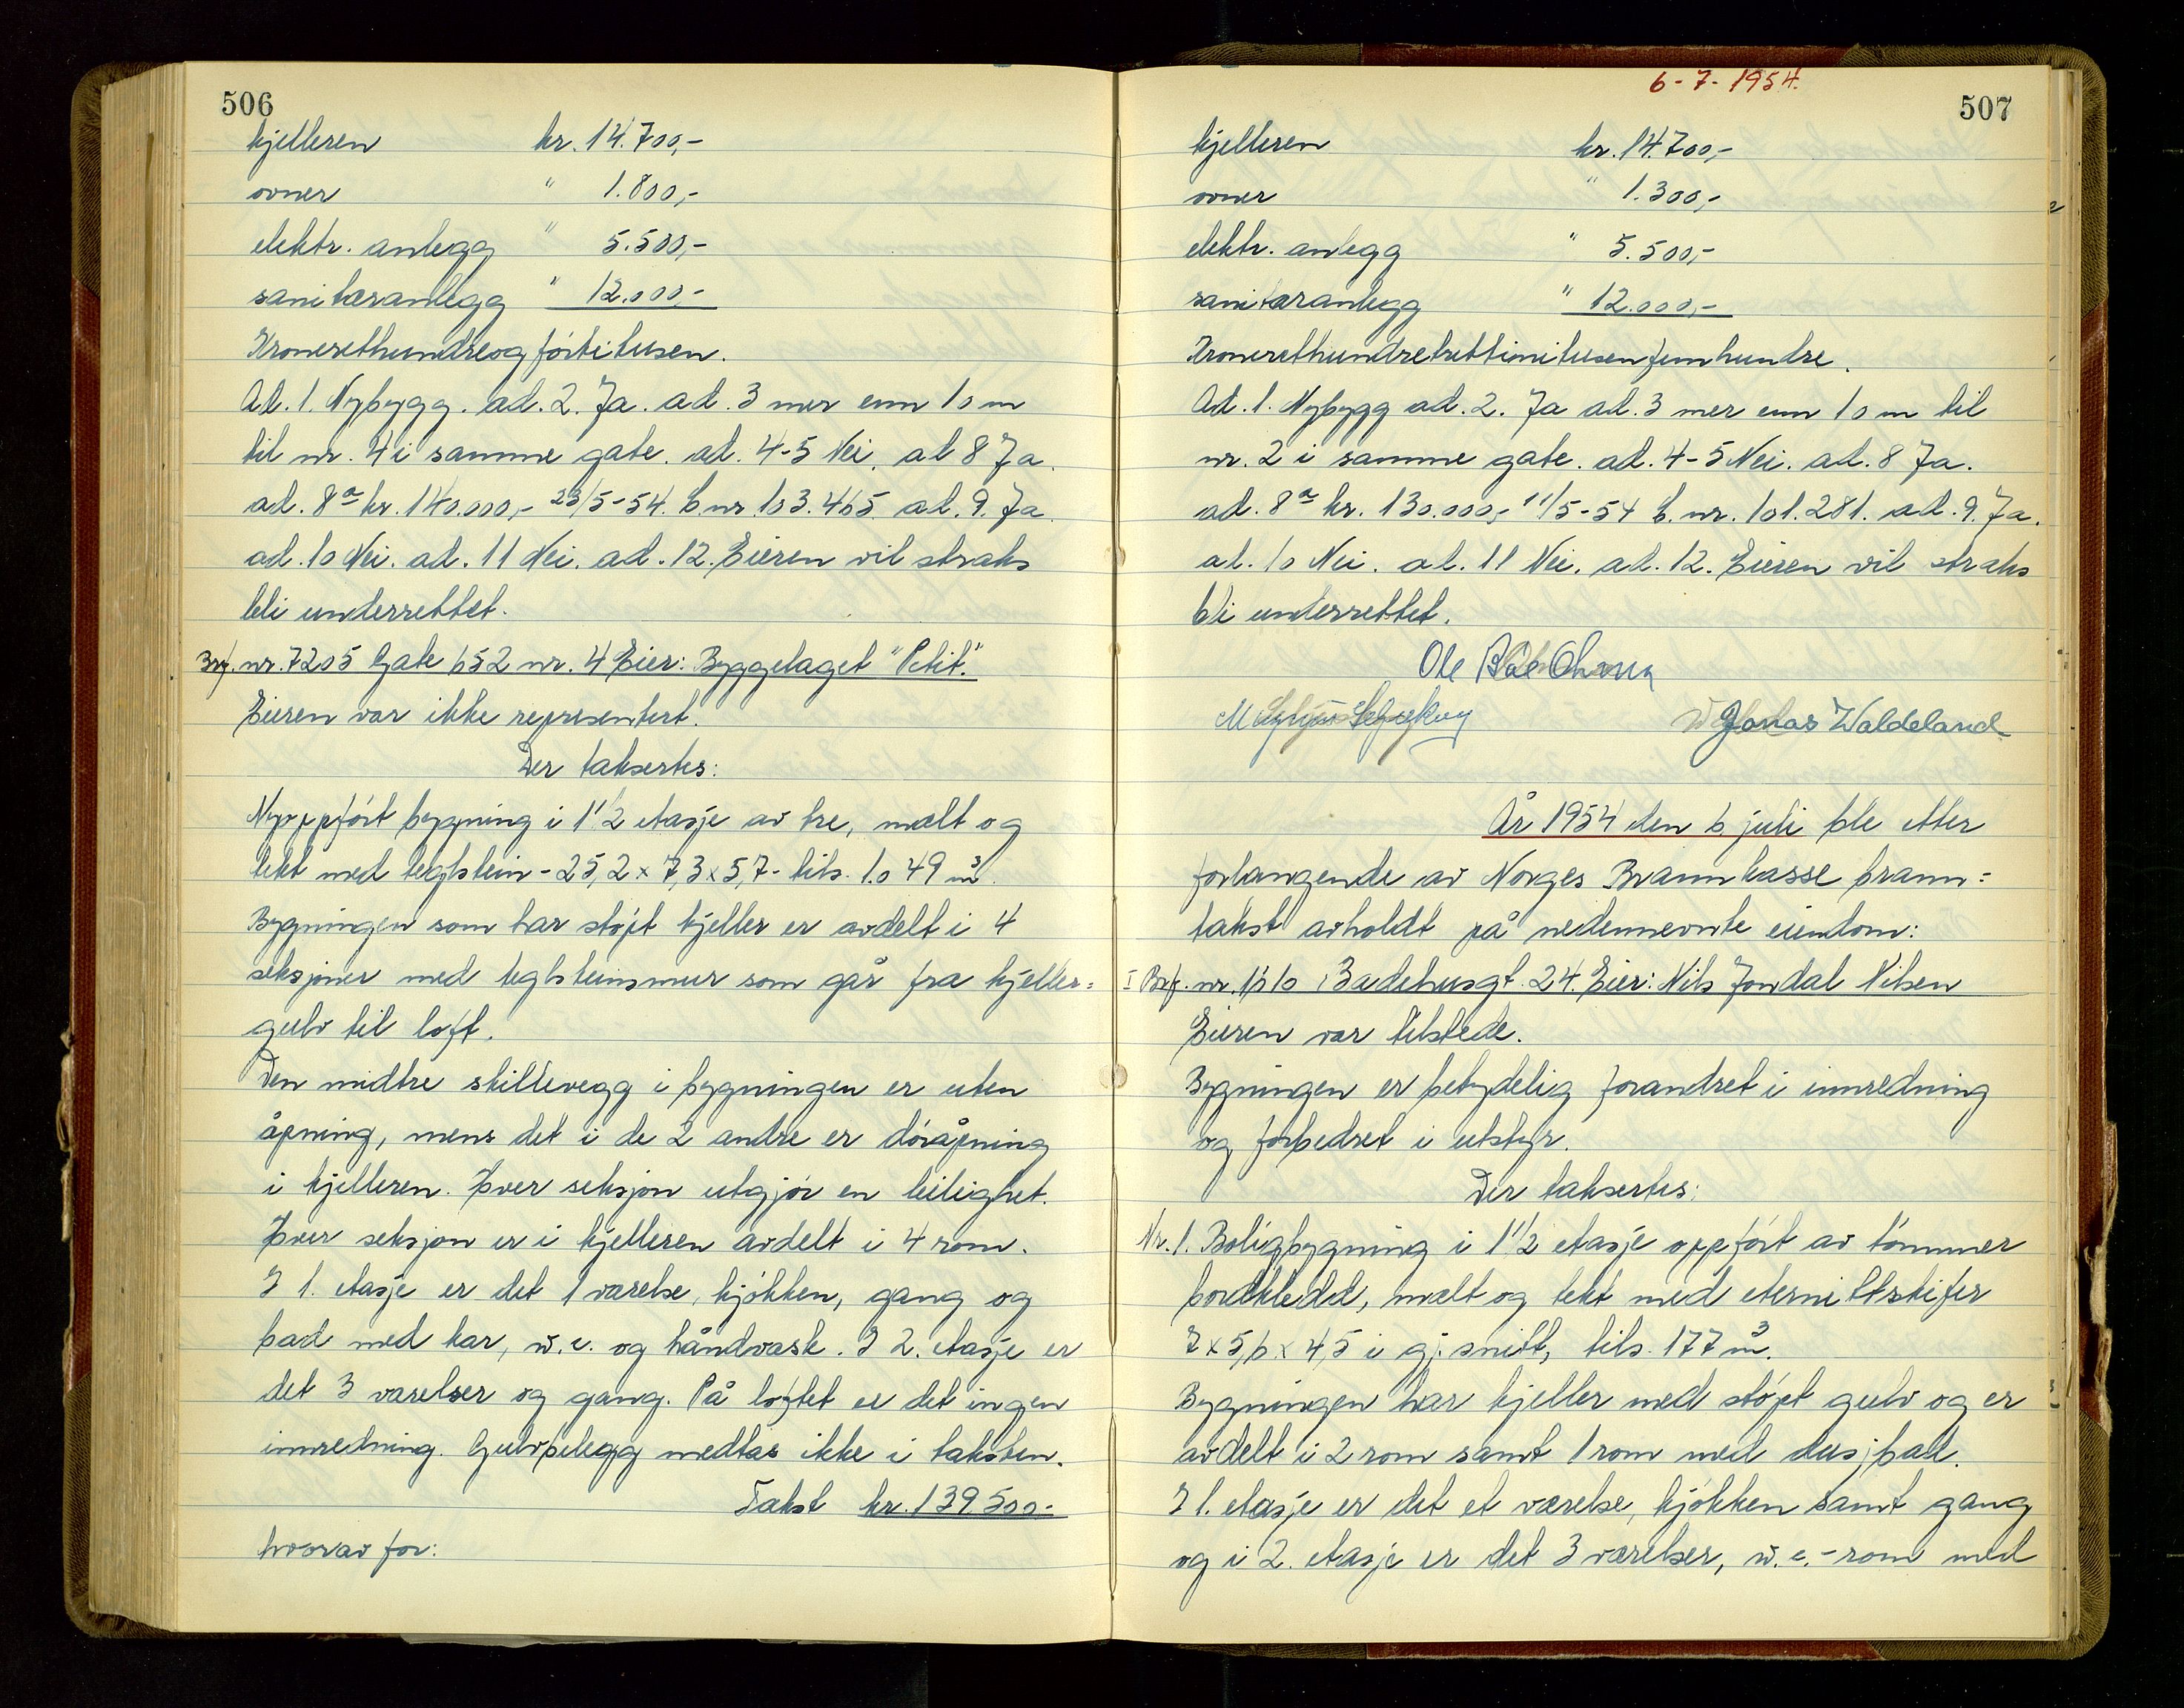 506
kjelleren kr. 14.700,-
ovner " 1.800,-
elektr. anlegg " 5.500,-
sanitæranlegg " 12.000,-
Kronerethundreogførtitusen.
Ad. 1. Nybygg. ad. 2. Ja. ad. 3 mer enn 10 m
til nr. 4 i samme gate. ad. 4-5 Nei. ad 8 Ja.
ad. 8a kr. 140.000,- 23/5-54. b.nr. 103.465. ad. 9. Ja
ad. 10 Nei. ad. 11 Nei. ad. 12. Eieren vil straks
bli underrettet.
Brf. nr. 7205 Gate 652 nr. 4 Eier: Byggelaget "Petit."
Eieren var ikke representert.
Der takseres:
Nyoppført bygning i 1 1/2 etasje av tre, malt og
tekt med teglstein - 25,2 x 7,3 x 5,7 - tils. 1.049 m3.
Bygningen som har støpt kjeller er avdelt i 4
seksjoner med teglsteinsmur som går fra kjeller=
gulv til loft.
Den midtre skillevegg i bygningen er uten
åpning, mens det i de 2 andre er døråpning
i kjelleren. Hver seksjon utgjør en leilighet.
Hver seksjon er i kjelleren avdelt i 4 rom.
I 1. etasje er det 1 værelse, kjøkken, gang og
bad med kar, w.c. og håndvask. I 2. etasje er
det 3 værelser og gang. På loftet er det ingen
innredning. Gulvbelegg medtas ikke i taksten.
Takst kr. 139.500,-
hvorav for:
6-7-1954.
507
kjelleren kr. 14.700,-
ovner " 1.300,-
elektr. anlegg " 5.500,-
sanitæranlegg " 12.000,-
Kronerethundretrettinitusenfemhundre.
Ad. 1. Nybygg ad. 2. Ja ad. 3 mer enn 10 m til
nr. 2 i samme gate. ad. 4-5 Nei. ad. 8 Ja.
ad. 8a kr. 130.000,- 11/5-54 b. nr. 101.281. ad. 9. Ja.
ad. 10 Nei. ad. 11 Nei. ad. 12. Eieren vil straks
bli underrettet.
Ole
Jonas Waldeland
År 1954 den 6. juli ble etter
forlangende av Norges Brannkasse brann=
takst avholdt på nedennevnte eiendom:
I Brf. nr. 1610 Badehusgt. 24. Eier: Nils Jondal Nilsen
Eieren var tilstede.
Bygningen er betydelig forandret i innredning
og forbedret i utstyr.
Der takseres:
Nr. 1. Boligbygning i 1 1/2 etasje oppført av tømmer
bordkledd, malt og tekt med eternittskifer
7 x 5,6 x 4,5 i gj. snitt, tils. 177 m3.
Bygningen har kjeller med støpt gulv og er
avdelt i 2 rom samt 1 rom med dusjbad.
I 1. etasje er det et værelse, kjøkken samt gang
og i 2. etasje er det 3 værelser, w.c.-rom med